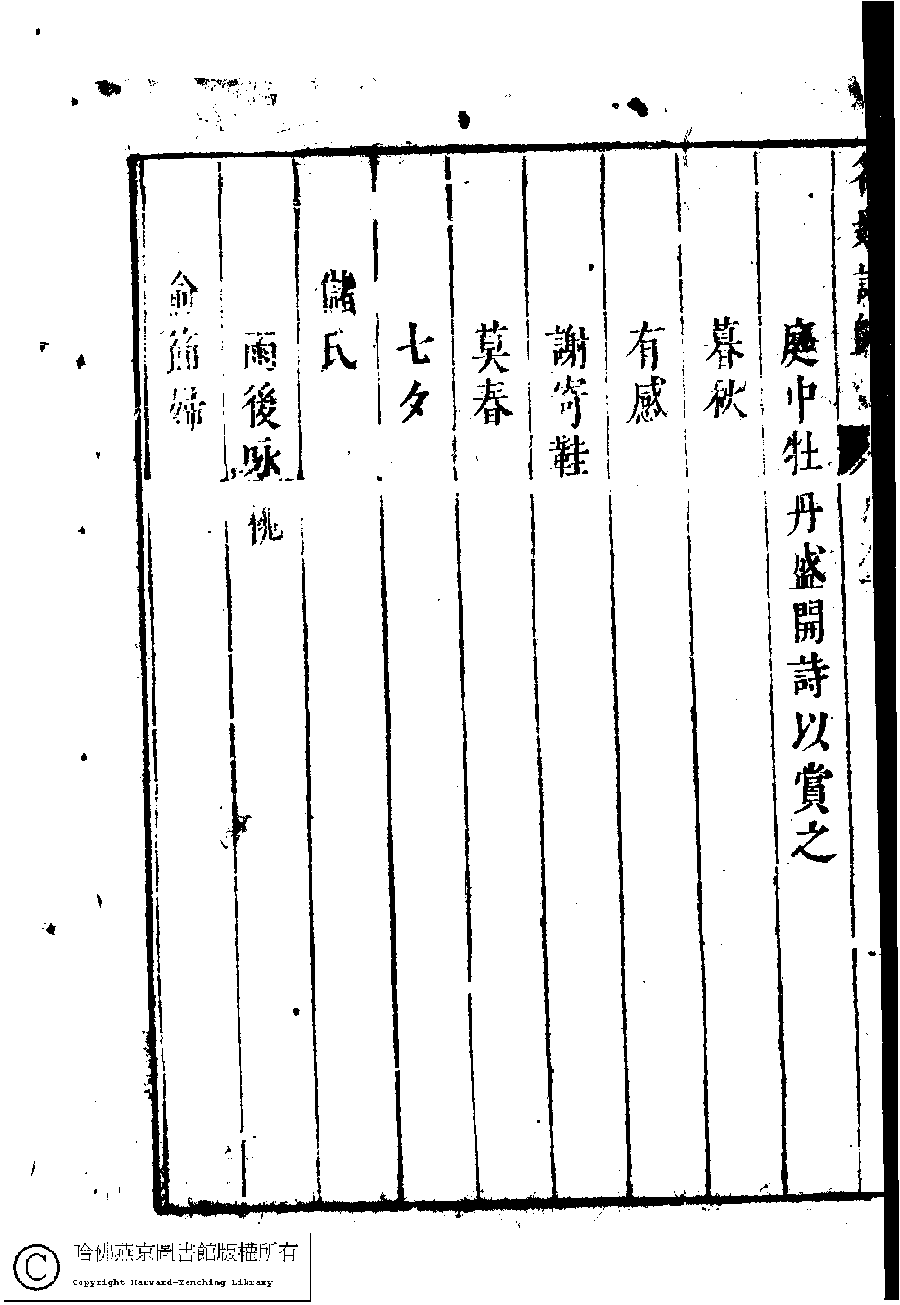 庭中牡丹盛開詩以賞之
暮秋
有感
謝寄鞋
莫春
七夕
儲氏
雨後咏桃
俞節婦
哈佛燕京圖書館版權所有
Copyright Harvard-Yenching Library